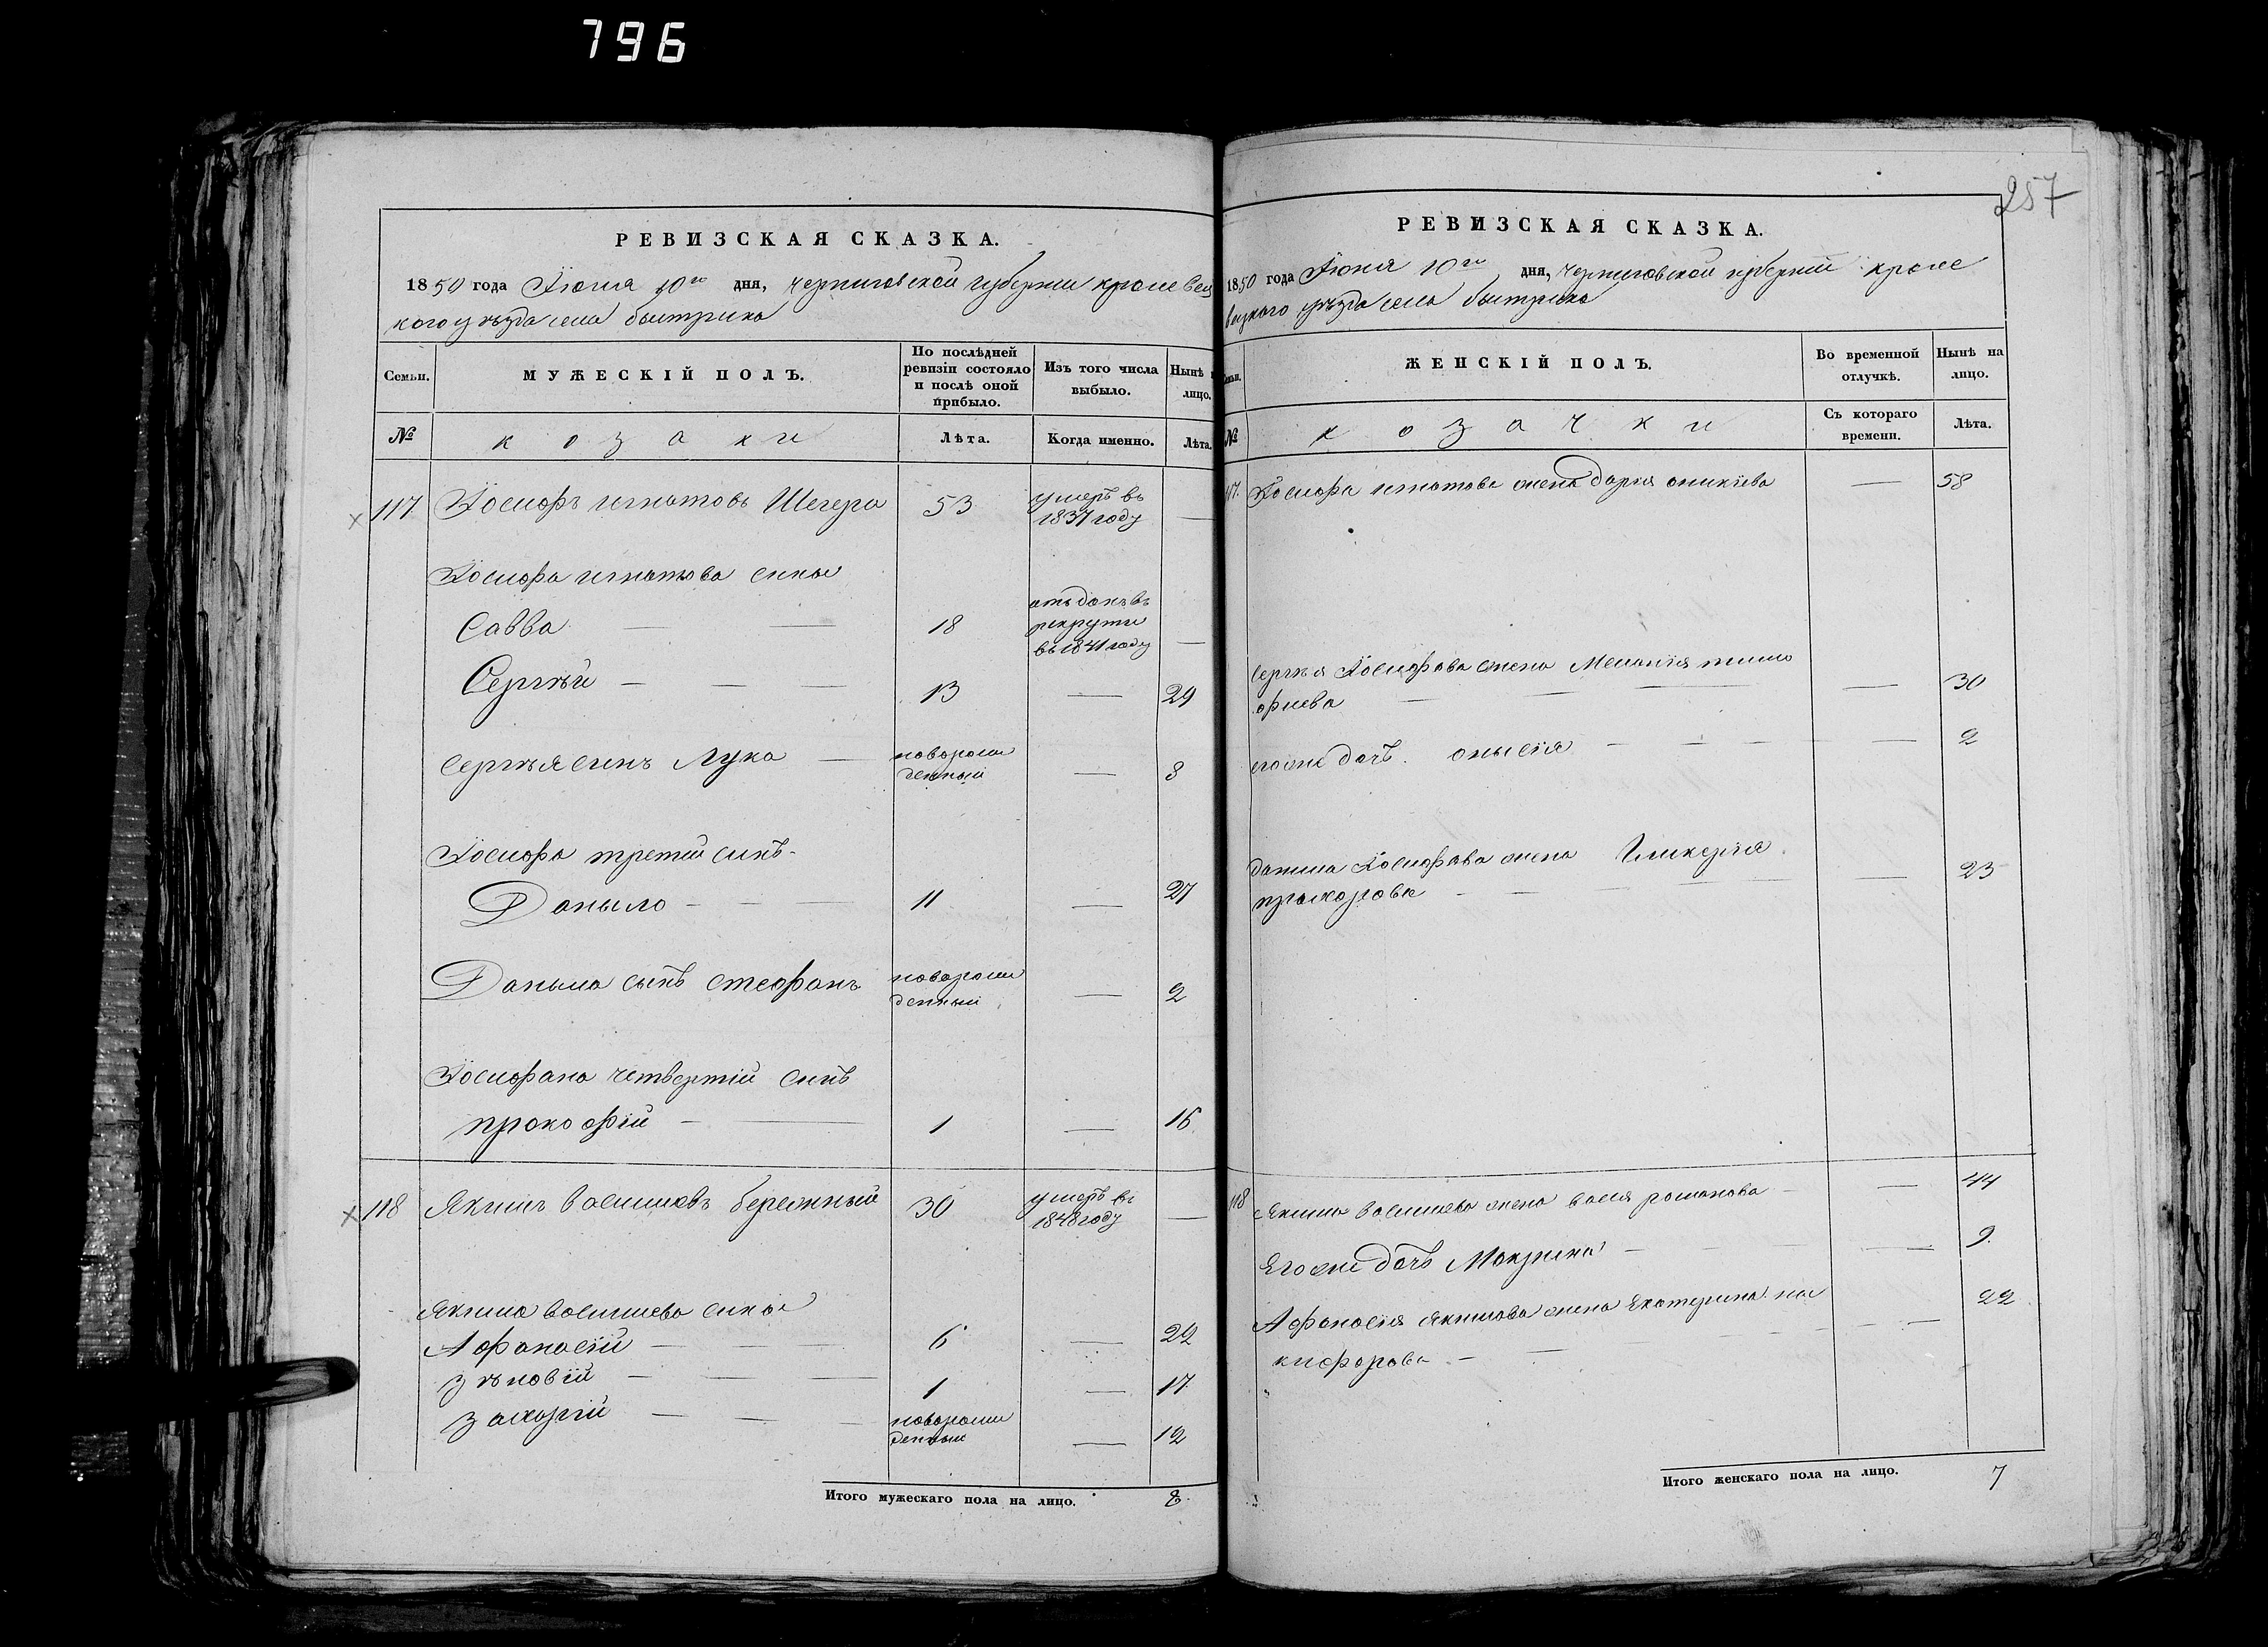 796
РЕВИЗСКАЯ СКАЗКА.
1850 года Іюня 10го дня, черниговской губернии кролевец
кого уѣзда села быстрика
Семьи.
МУЖЕСКІЙ ПОЛЪ.
По послѣдней ревизіи состояло и послѣ оной прибыло.
Изъ того числа выбыло.
Нынѣ на лицо.
№
козаки
Лѣта.
Когда именно.
Лѣта.
117 Іосифъ игнатовъ Шегера 53 умеръ въ
1837 году —
Іосифа игнатова сины
Савва — — 18 отъданъ въ
рекрути
въ 1841 году —
Сергѣй — — — 13 — 29
Сергѣя синъ Лука — боворож
денный — 8
Іосифа третий синъ
Даныло — — — 11 — 27
Даныла сынъ стефанъ новорож
денный — 2
Іосифана четвертій синъ
прокофій — — 1 — 16
118 Якимъ васильевъ бережный 30 умеръ въ
1848 году —
Якима васильева сины
Афанасій — — — 6 — 22
зѣновій — — — 1 — 17
захарій — — — новорож
денный — 12
Итого мужескаго пола на лицо. 8
257
РЕВИЗСКАЯ СКАЗКА.
1850 года Іюня 10го дня, черниговской губерній кроле
вецкого уѣзда села быстрика
Семьи.
ЖЕНСКІЙ ПОЛЪ.
Во временной отлучкѣ.
Нынѣ на лицо.
№
козачки
Съ котораго времени.
Лѣта.
117. Іосифа игнатова жена дарія оникіева — 58
Сергѣя Іосифова жена Меланія тимо
фиева — — — — 30
его же дочъ. онисія — — — — 2
данила Іосифова жена Гликерія
прохоровa — — — — 23
118 Якима васильева жена васся романова — — 44
Его же дочъ Макрина — — — — 9.
Афанасія Якимова жена Екатерина ни
кифорова — — — — 22
Итого женскаго пола на лицо. 7